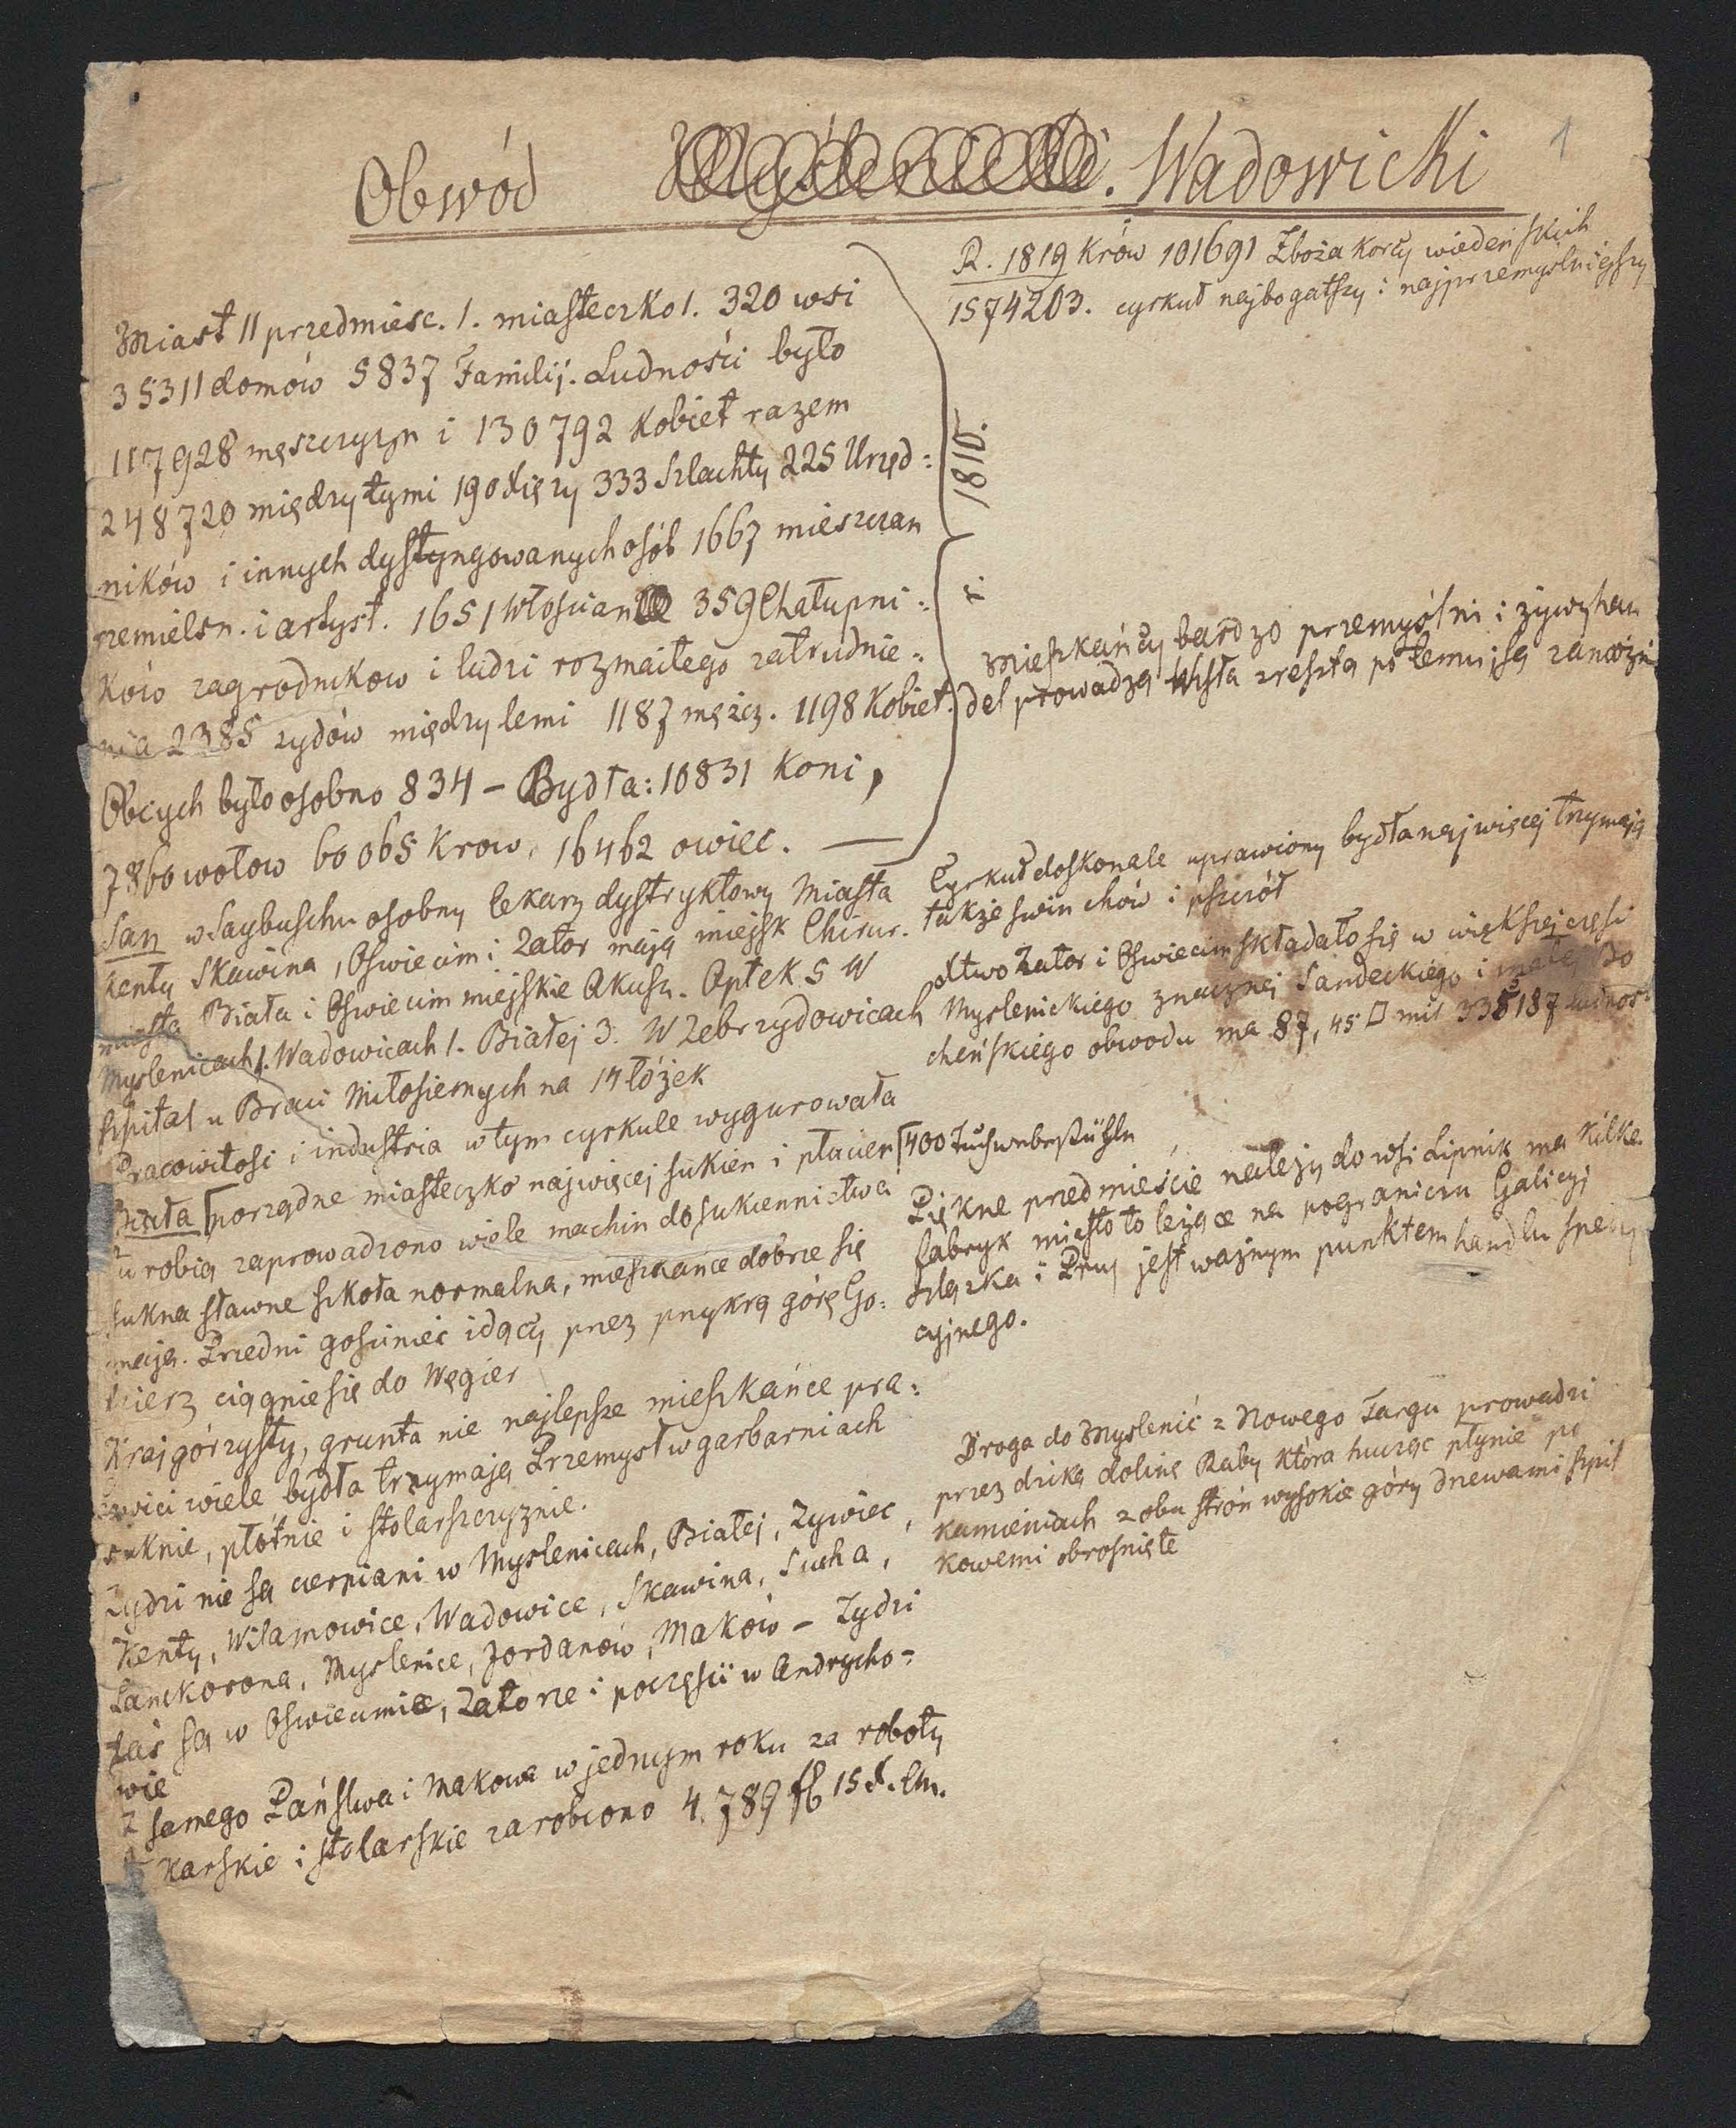 1
Obwód Myślenicki. Wadowicki
Miast 11 przedmiesc. 1. miasteczko 1. 320 wsi
35311 domów 5837 Familij. Ludności było
117928 męszczyzn i 130792 Kobiet razem
248720 między tymi 190 Xięzy 333 Szlachty 225 Urzęd:
ników i innych dystyngowanych osób 1667 mieszczan
rzemieśn. i artyst. 1651 Włościan 359 Chałupni:
ków zagrodnikow i ludzi rozmaitego zatrudnie:
nia 2385 zydów między temi 1187 męzcz. 1198 Kobiet.
Obcych było osobno 834 – Bydła: 10831 Koni,
7860 wołow 60065 Krow, 16462 owiec. —
1810.
San w Saybuschu osobny lekarz dystryktowy Miasta
Kenty Skawina, Oswiecim i Zator mają miejsk Chirur.
miasta Biała i Oswiecim miejskie Akusz. Aptek 5 W
Myslenicach 1. Wadowicach 1. Białej 3. W Zebrzydowicach
szpital u Braci Miłosiernych na 14 łóżek
Pracowitosc i industria w tym cyrkule wygurowała
Biała porządne miasteczko najwięcej sukien i płucien
tu robią zaprowadzono wiele machin do sukiennictwa
sukna sławne szkoła normalna, mieszkańce dobrze się
mają. Przedni gosciniec idący przez przykrą górę Go:
bierz ciągnie się do Węgier
Kraj górzysty, grunta nie najlepsze mieszkańce pra:
cowici wiele bydła trzymają Przemysł w garbarniach
suknie, płótnie i stolarszczyznie.
Zydzi nie są cierpiani w Myslenicach, Białej, Zywiec,
Kenty, Wilamowice, Wadowice, Skawina, Sucha,
Lanckorona, Myslenice, Jordanów, Maków – Zydzi
zaś są w Oswiecimie, Zatorze i poczęści w Andrycho=
wie
Z samego Państwa i Makowa w jednym roku za roboty
karskie i stolarskie zarobiono 4.789 fl 15 x. Cm.
R. 1819 Krów 101691 Zboża korcy wiedeńskich
1574203. cyrkuł najbogatszy i najprzemyslniejszy
Mieszkańcy bardzo przemyślni i żywy han
del prowadzą Wisła zreszta po temu i są zamożni
Cyrkuł doskonale uprawiony bydła najwięcej trzymają
także swin chów i pszczół
Xtwo Zator i Oswiecim składało się w większej części
Myslenickiego znacznej Sandeckiego i małej Bo
cheńskiego obwodu ma 87,45 □ mil 335187 ludnos
400 Tuchweberstühle
Piękne przedmieście należy do wsi Lipnik ma kilka
fabryk miasto to leżące na pograniczu Galicyi
Szląska i Prus jest ważnym punktem handlu spedy
cyjnego.
Droga do Myslenic z Nowego Targu prowadzi
przez dziką dolinę Raby która hucząc płynie po
kamieniach z obu strón wysokie góry drzewami szpil
kowemi obrosnięte